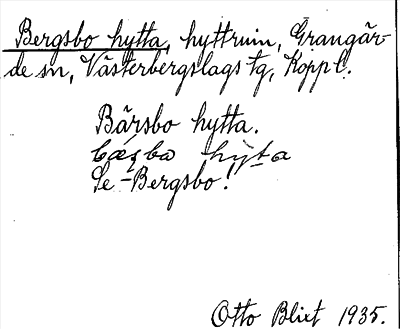 Bergsbo hytta, hyttruin, Grangär-
de sn, Västerbergslags tg, Kopp l.
Bärsbo hytta.
hyta
Se Bergsbo!
Otto Blixt 1935.